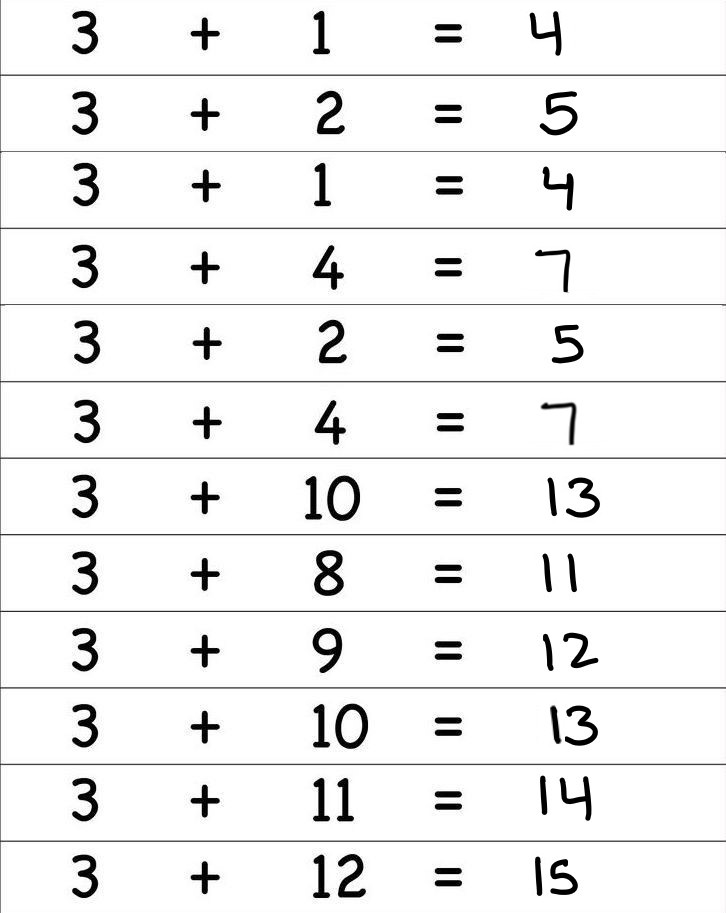 3 + 1 = 4
3 + 2 = 5
3 + 1 = 4
3 + 4 = 7
3 + 2 = 5
3 + 4 = 7
3 + 10 = 13
3 + 8 = 11
3 + 9 = 12
3 + 10 = 13
3 + 11 = 14
3 + 12 = 15